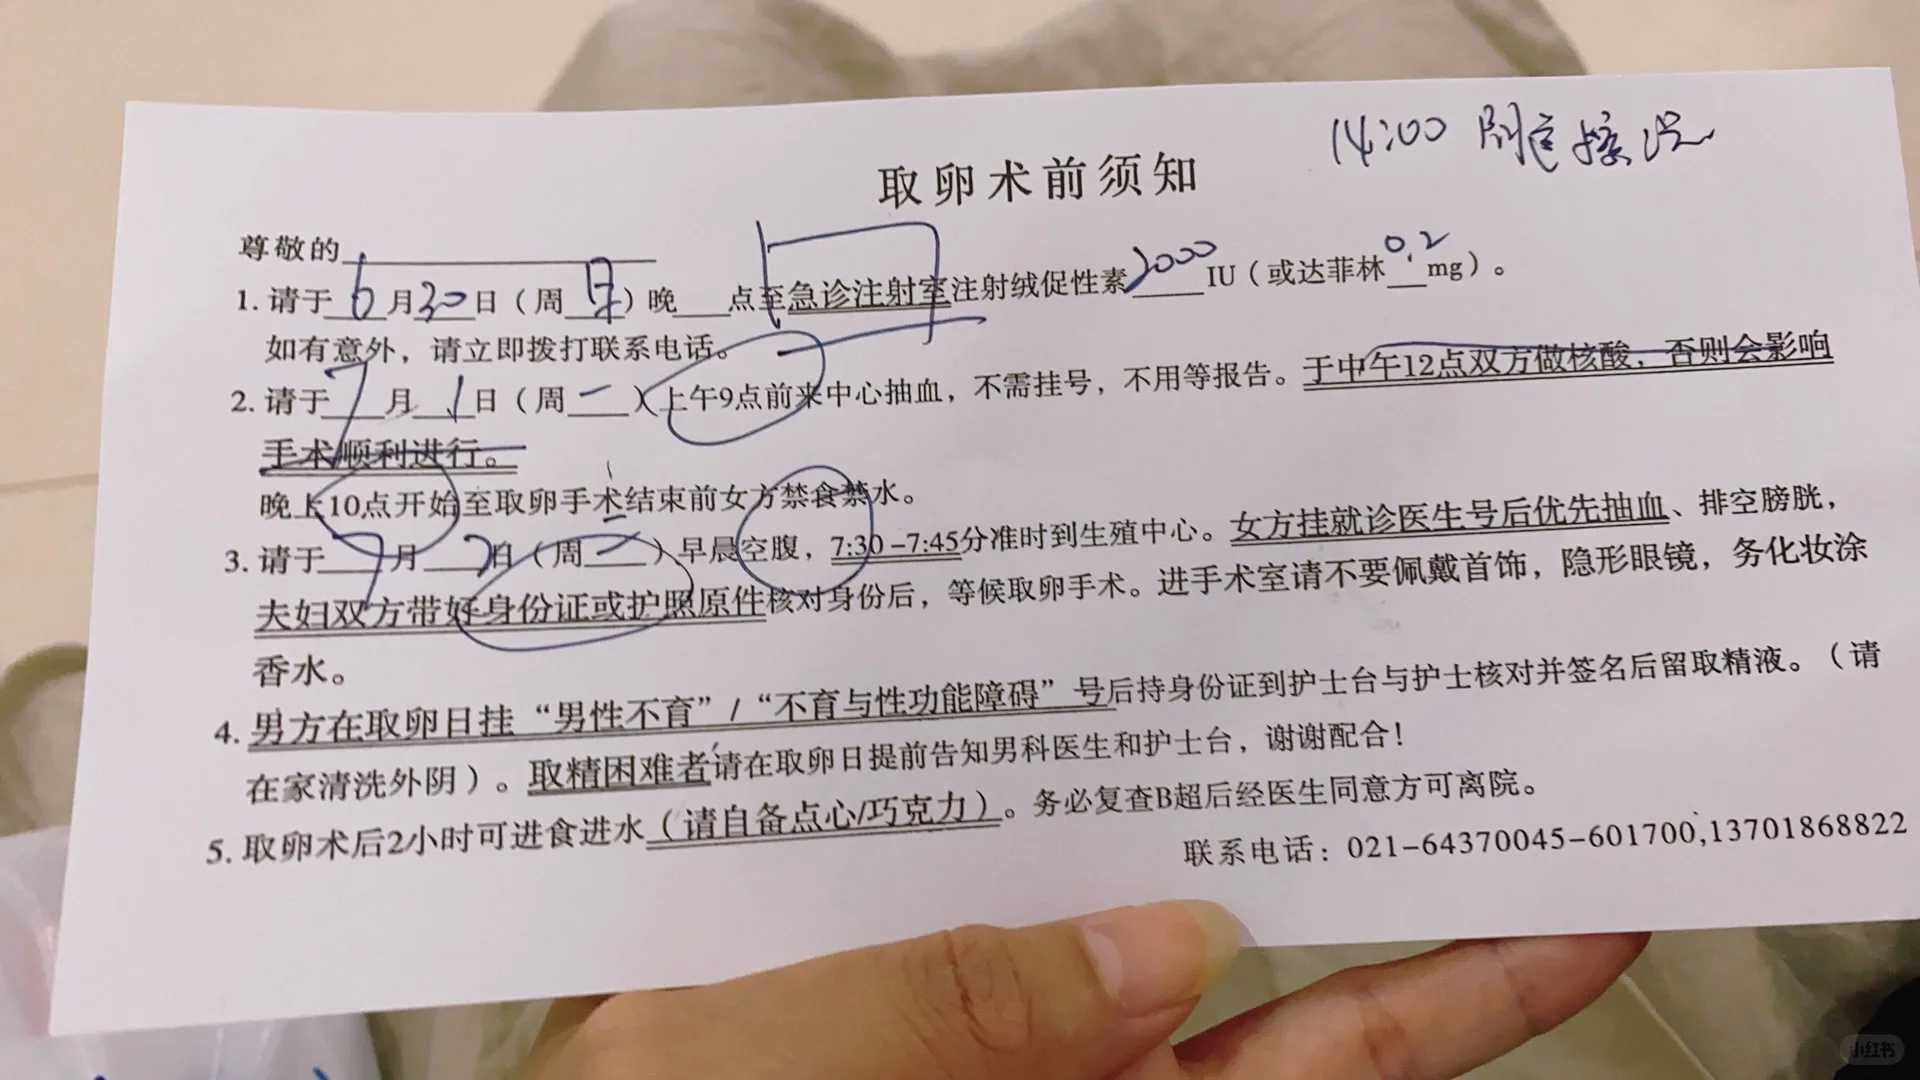 14:00
取卵术前须知
尊敬的
1. 请于6月30日（周日）晚___点至急诊注射室注射绒促性素2000IU（或达菲林0.2mg）。
如有意外，请立即拨打联系电话。
2. 请于7月1日（周一）上午9点前来中心抽血，不需挂号，不用等报告。于中午12点双方做核酸，否则会影响
手术顺利进行。
晚上10点开始至取卵手术结束前女方禁食禁水。
3. 请于7月2日（周二）早晨空腹，7:30-7:45分准时到生殖中心。女方挂就诊医生号后优先抽血、排空膀胱，
夫妇双方带好身份证或护照原件核对身份后，等候取卵手术。进手术室请不要佩戴首饰，隐形眼镜，务化妆涂
香水。
4. 男方在取卵日挂“男性不育”/“不育与性功能障碍”号后持身份证到护士台与护士核对并签名后留取精液。（请
在家清洗外阴）。取精困难者请在取卵日提前告知男科医生和护士台，谢谢配合！
5. 取卵术后2小时可进食进水（请自备点心/巧克力）。务必复查B超后经医生同意方可离院。
联系电话：021-64370045-601700,13701868822
小红书